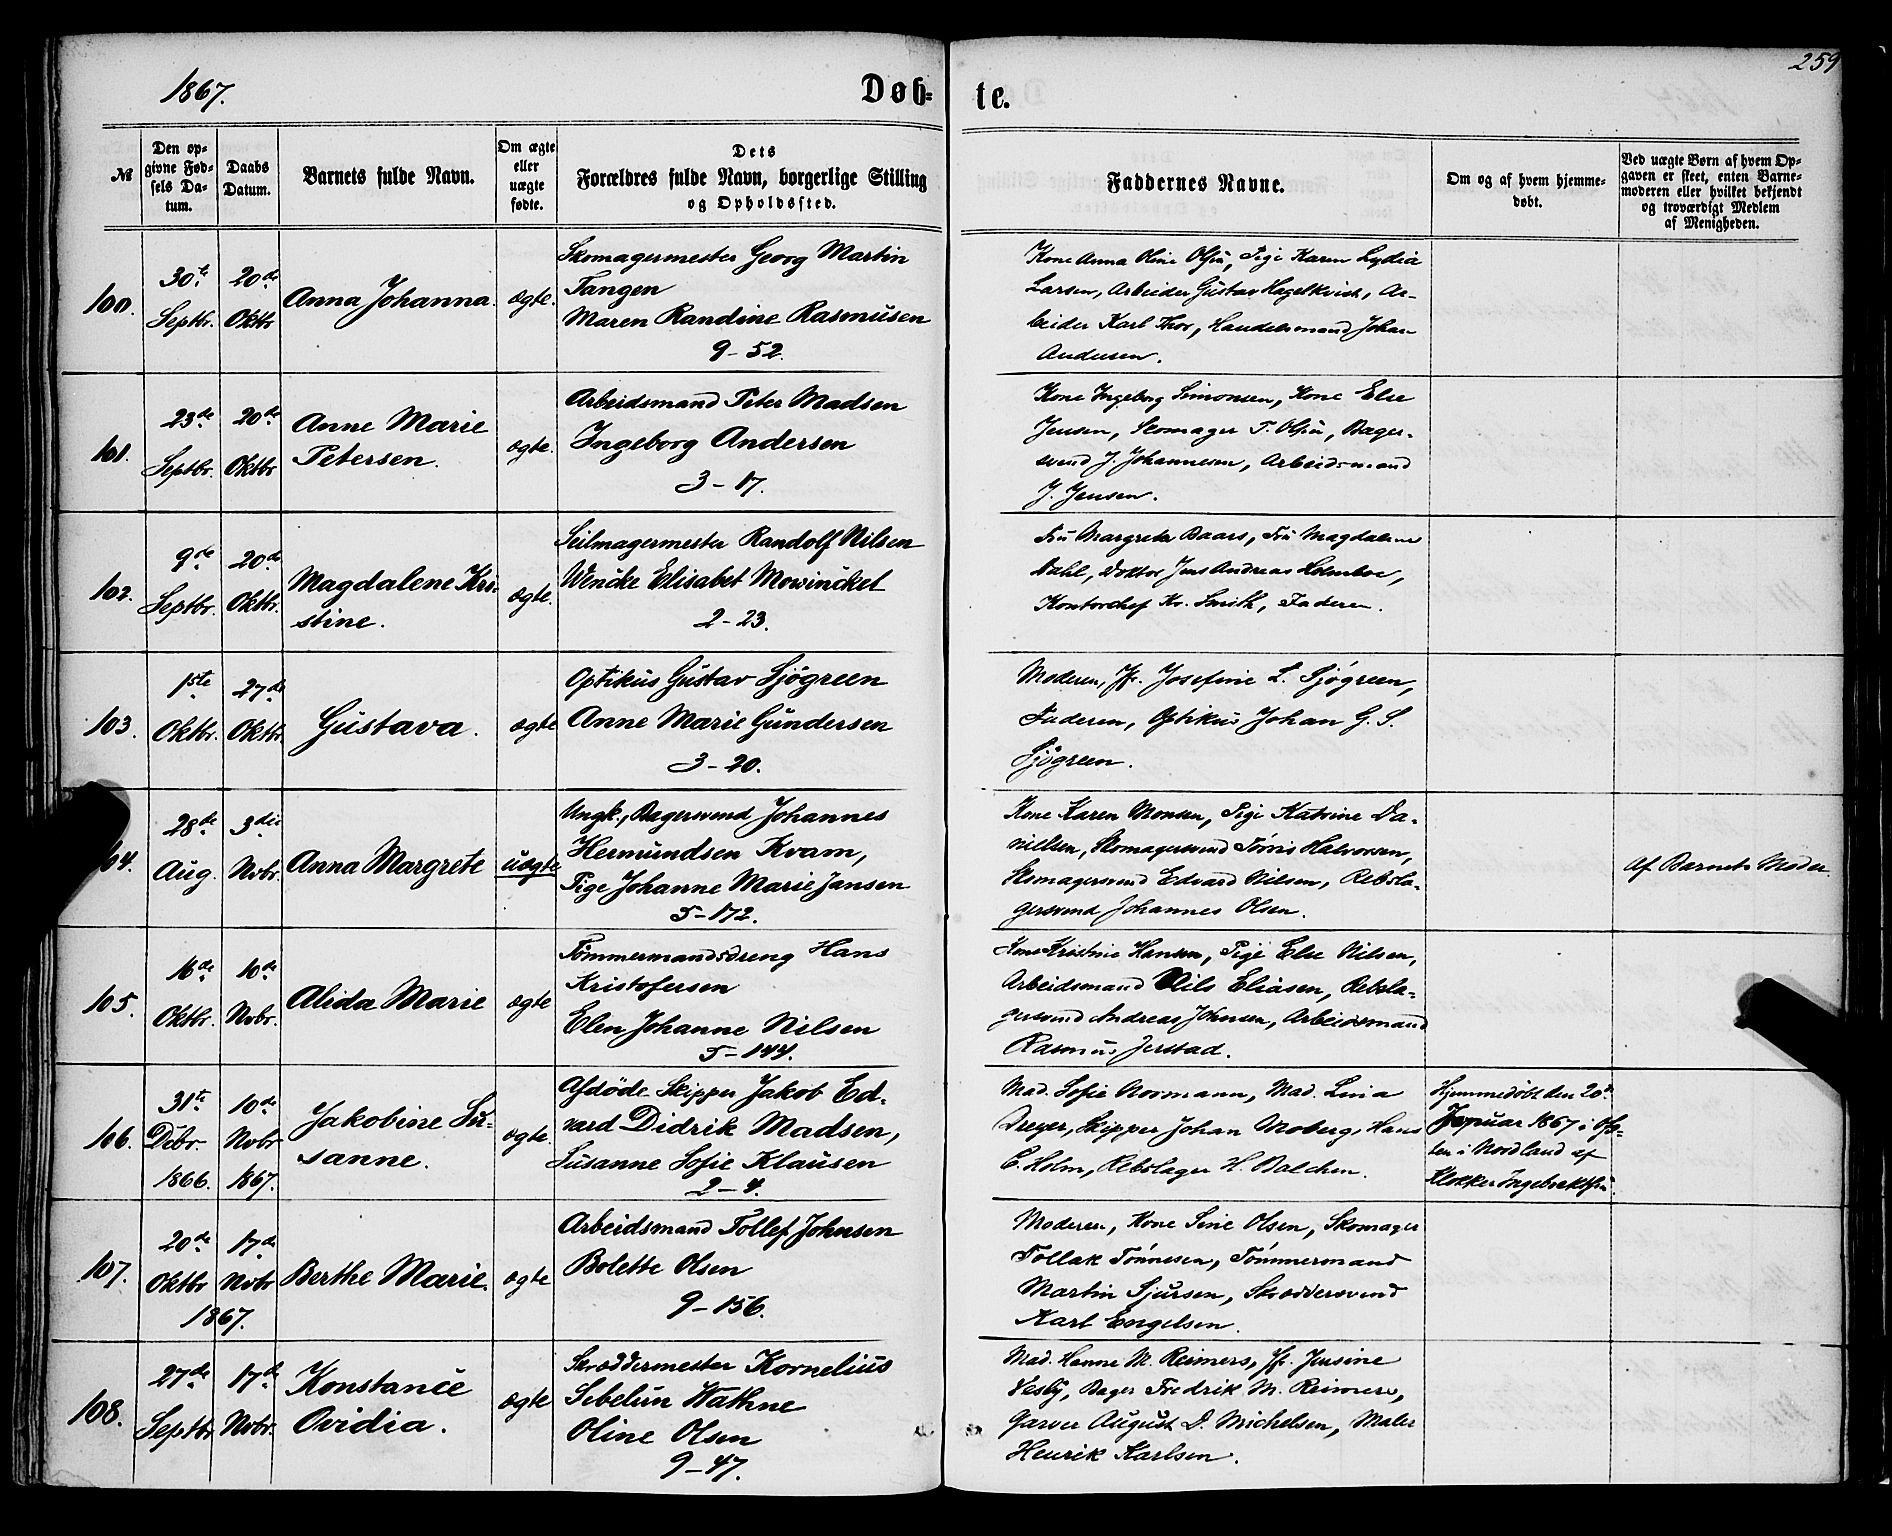 1867.
Døb-
te.
259
№
Den op-
givne Fød-
sels Da-
tum.
Daabs
Datum.
Barnets fulde Navn.
Om ægte
eller
uægte
fødte.
Dets
Forældres fulde Navn, borgerlige Stilling
og Opholdssted.
Faddernes Navne.
Om og af hvem hjemme-
døbt.
Ved uægte Børn af hvem Op-
gaven er skeet, enten Barne-
moderen eller hvilket bekjendt
og troværdigt Medlem
af Menigheden.
100.
30te
Septbr.
20de
Oktbr
Anna Johanna.
ægte.
Skomagermester Georg Martin
Tangen
Maren Randine Rasmusen
9-52.
Kone Anna Oline Olsen, Pige Karen Lydia
Larsen, Arbeider Gustav Hagelkvist, Ar-
beider Karl Thor, Handelsmand Johan
Andersen.
101.
23de
Septbr.
20de
Oktbr
Anne Marie
Petersen.
ægte.
Arbeidsmand Peter Madsen
Ingeborg Andersen
3-17.
Kone Ingeborg Simonsen, Kone Else
Jensen, Skomager T. Olsen, Bager-
svend J. Johannesen, Arbeidsmand
J. Jensen.
102.
9de
Septbr.
20de
Oktbr.
Magdalene Kri-
stine.
ægte.
Seilmagermester Randolf Nilsen
Wencke Elisabet Mowinckel
2-23.
Fru Margrete Baars, Fru Magdalene
Dahl, Doktor Jens Andreas Holmboe,
Kontorchef Kr. Smith, Faderen.
103.
1ste
Oktbr.
27de
Oktbr.
Gustava.
ægte
Optikus Gustav Sjögreen
Anne Marie Gundersen
3-20.
Moderen, Jfr. Josefine L. Sjögreen,
Faderen, Optikus Johan G. S.
Sjögreen.
104.
28de
Aug.
3die
Nvbr.
Anna Margrete
uægte
Ungk., Bagersvend Johannes
Hermundsen Kvam,
Pige Johanne Marie Jansen
5-172.
Kone Karen Monsen, Pige Katrine Da-
nielsen, Skomagersvend Tørris Halvorsen,
Skomagersvend Edvard Nilsen, Rebsla-
gersvend Johannes Olsen.
Af Barnets Moder.
105.
16de
Oktbr.
10de
Nvbr.
Alida Marie
ægte
Tömmermandsdreng Hans
Kristofersen
Elen Johanne Nilsen
5-144.
Kone Kristine Hansen, Pige Else Nilsen,
Arbeidsmand Nils Eliasen, Rebsla-
gersvend Andreas Johnsen, Arbeidsmand
Rasmus Jerstad.
106.
31te
Debr.
1866.
10de
Nvbr
1867.
Jakobine Su-
sanne.
ægte.
Afdöde Skipper Jakob Ed-
vard Didrik Madsen,
Susanne Sofie Klausen
2-4.
Mad. Sofie Normann, Mad. Lina
Dreyer, Skipper Johan Moberg, Hans
C. Holm, Rebslager H. Balchen.
Hjemmedöbt den 20de
Januar 1867 i Ofo-
ten i Nordland af
Klokker Ingebrektsen.
107.
20de
Oktbr
1867.
17de
Nvbr
Berthe Marie.
ægte
Arbeidsmand Tollef Johnsen
Bolette Olsen
9-156.
Moderen, Kone Sine Olsen, Skomager
Tollak Tönnesen, Tömmermand
Martin Sjursen, Skræddersvend
Karl Engelsen.
108.
27de
Septbr
17de
Nvbr.
Konstance
Ovidia.
ægte
Skræddermester Kornelius
Sebelun Wathne
Oline Olsen
9-47.
Mad. Hanne M. Reimers, Jfr. Jensine
Vesby, Bager Fredrik M. Reimers,
Garver August D. Michelsen, Maler
Henrik Karlsen.